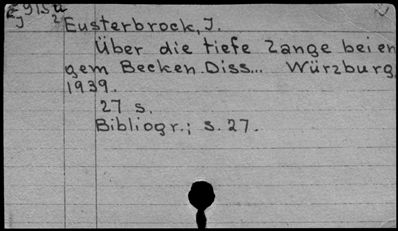 Eusterbrock, J.
Über die tiefe Zange bei en
gem Becken. Diss... Würzburg,
1939.
27 s.
Bibliogr.; s. 27.